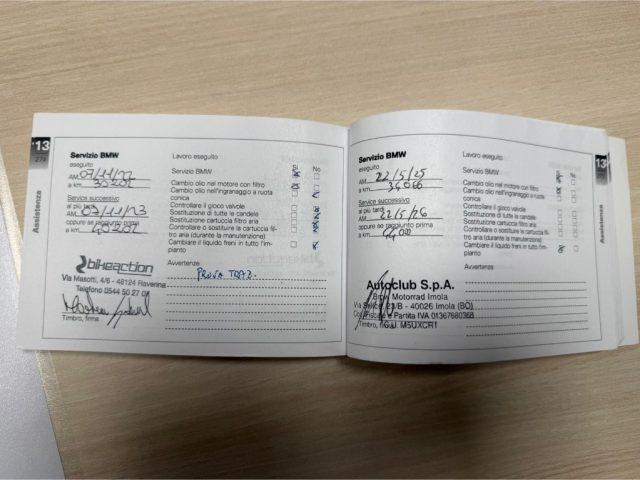 13
Assistenza
Servizio BMW
eseguito
AM
a km
Service successivo
al più tardi
AM 07/11/23
oppure se raggiunto prima
a km
bikeaction
Via Masotti, 4/6 - 48124 Ravenna
Telefono 0544 50 27
Timbro, firma
Lavoro eseguito
Servizio BMW
Cambio olio nel motore con filtro
Cambio olio nell'ingranaggio a ruota
conica
Controllare il gioco valvole
Sostituzione di tutte le candele
Sostituzione cartuccia filtro aria
Controllare o sostituire la cartuccia fil-
tro aria (durante la manutenzione)
Cambiare il liquido freni in tutto l'im-
pianto
Avvertenze
Sì
No
PROVA
Servizio BMW
eseguito
AM 22/5/25
a km
Service successivo
al più tardi
AM 22/5/26
oppure se raggiunto prima
a km
Autoclub S.p.A.
Bmw Motorrad Imola
40026 Imola (BO)
e Partita IVA 01367680368
M5UXCR1
Timbro,
Lavoro eseguito
Servizio BMW
Cambio olio nel motore con filtro
Cambio olio nell'ingranaggio a ruota
conica
Controllare il gioco valvole
Sostituzione di tutte le candele
Sostituzione cartuccia filtro aria
Controllare o sostituire la cartuccia fil-
tro aria (durante la manutenzione)
Cambiare il liquido freni in tutto l'im-
pianto
Avvertenze
Sì
No
13
Assistenza